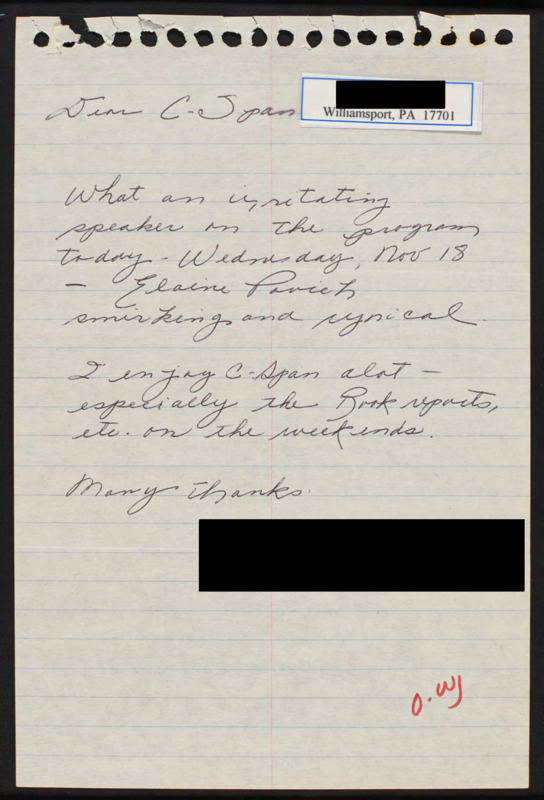 Dear C-Span
Williamsport, PA 17701
What an irritating
speaker on the program
today - Wednesday, Nov 18
- Elaine Povich
smirking and cynical.
I enjoy C-Span alot -
especially the Book reports,
etc. on the weekends.
Many thanks.